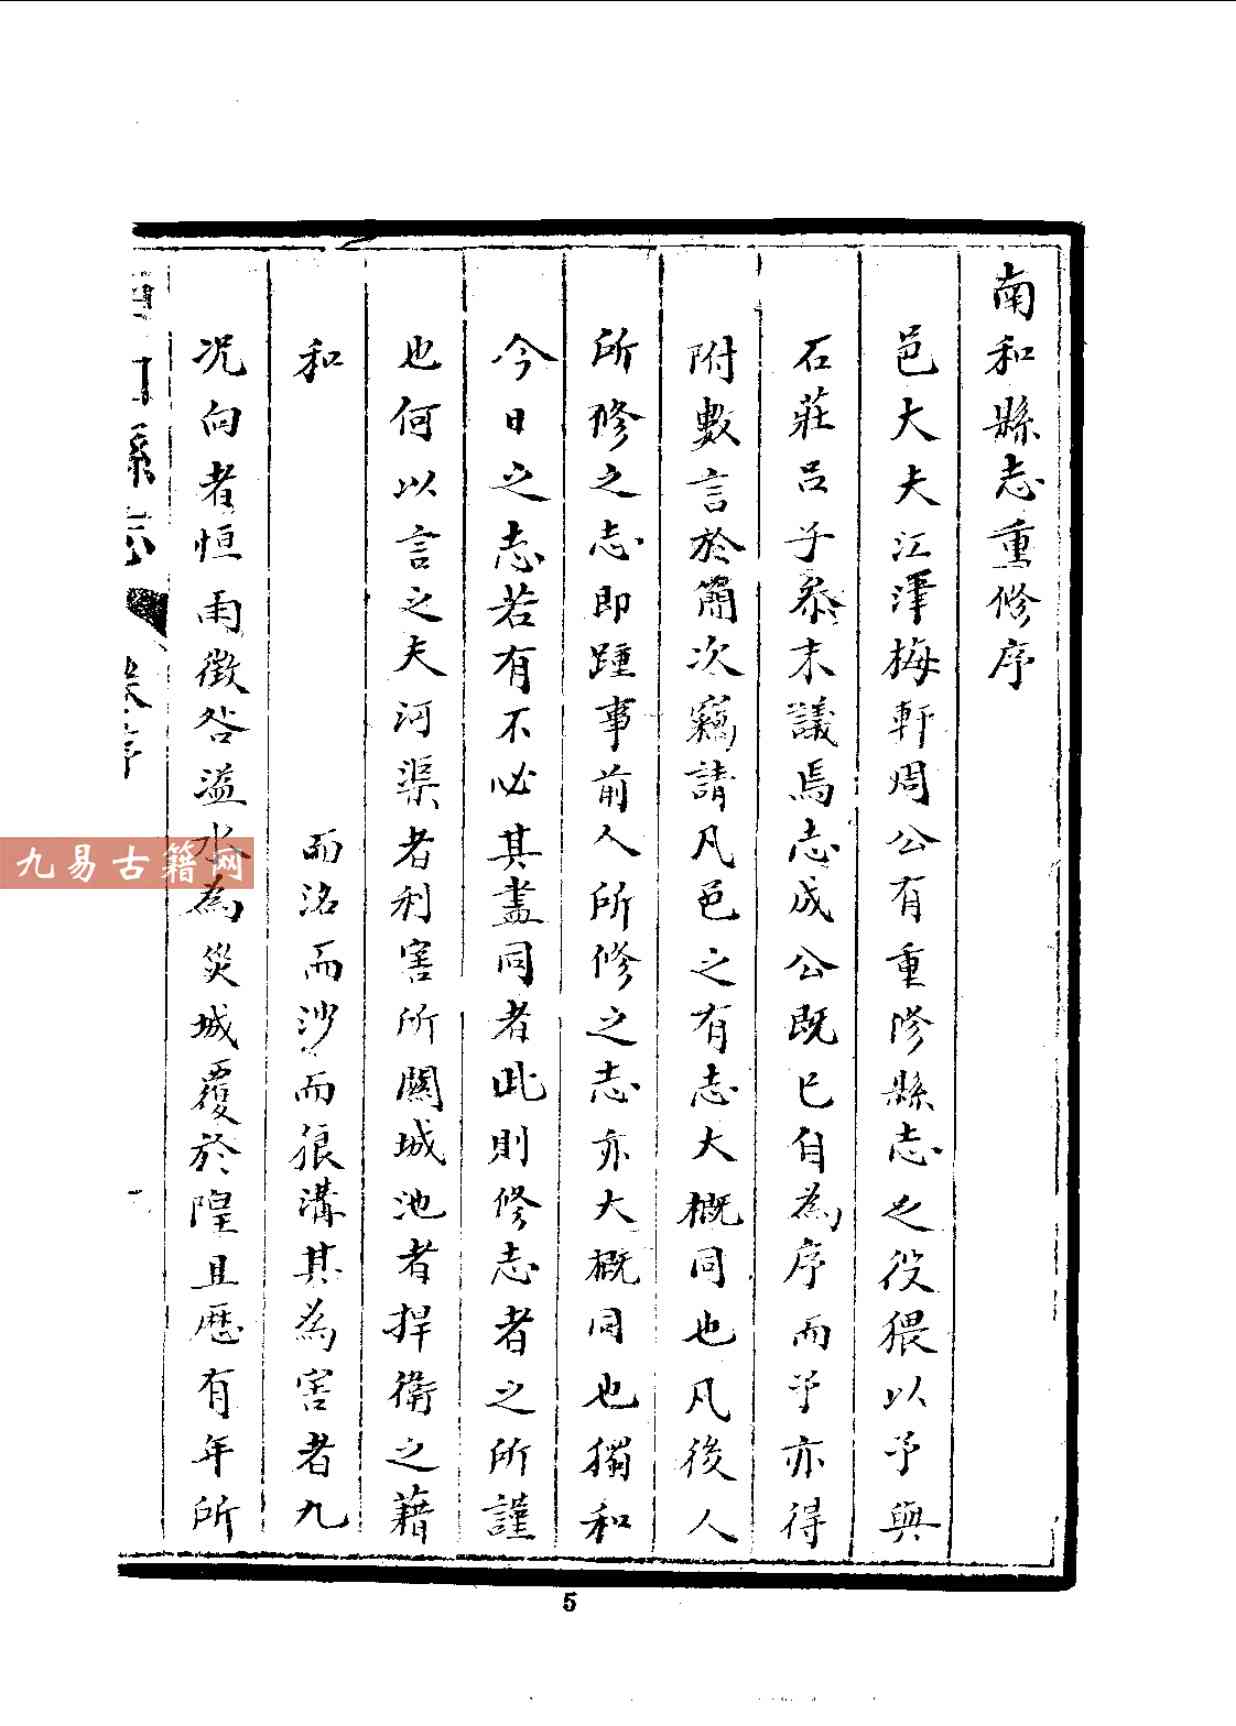 南和縣志重修序
邑大夫江澤梅軒周公有重修縣志之役猥以予與
石莊呂子叅末議焉志成公既已自為序而予亦得
附數言於簡次竊請凡邑之有志大概同也凡後人
所修之志即踵事前人所修之志亦大概同也獨和
今日之志若有不必其盡同者此則修志者之所謹
也何以言之夫河渠者利害所關城池者捍衛之藉
和 而洺而沙而狼溝其為害者九
况向者恒雨徵咎溢水為災城覆於隍且歷有年所
縣志
序
一
九易古籍网
5